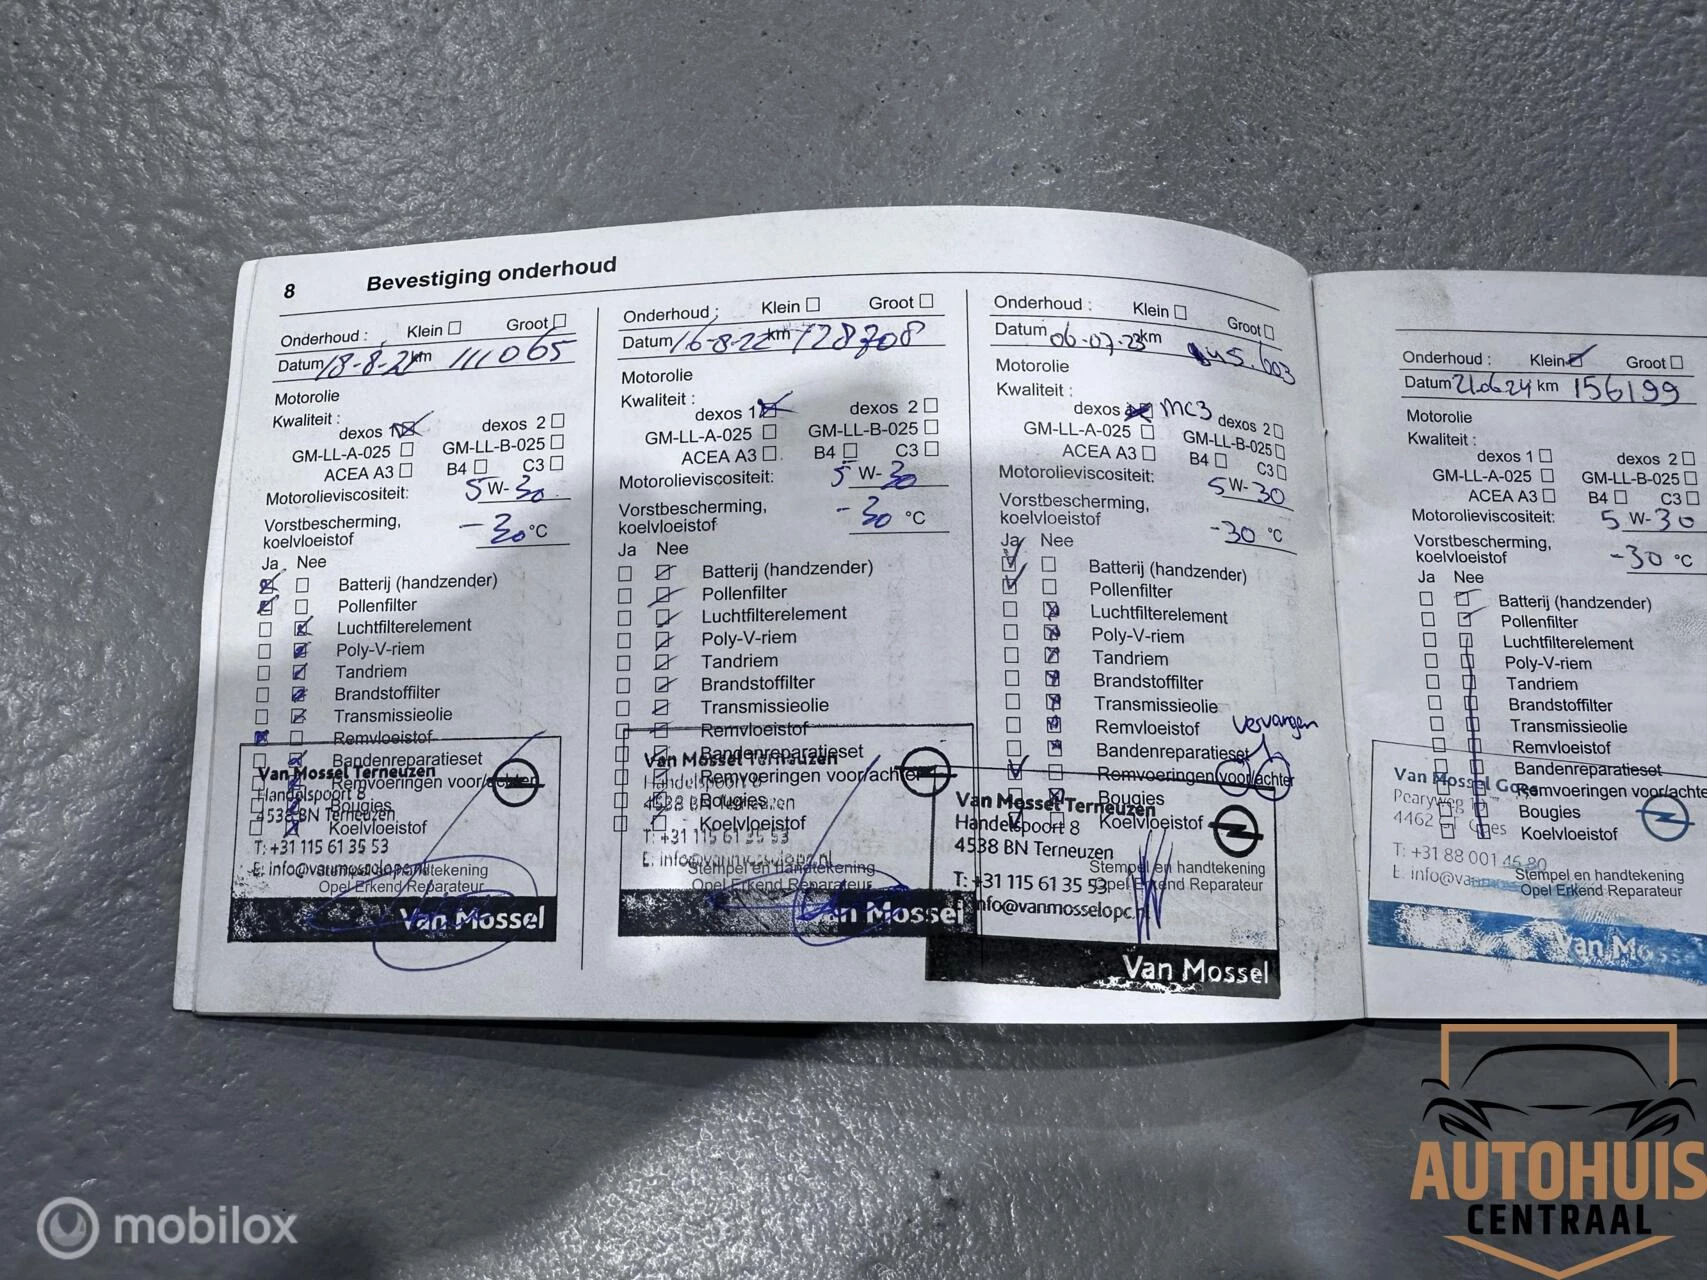 8 Bevestiging onderhoud
Onderhoud : Klein Groot
Datum 18-8-21 km 111065
Motorolie
Kwaliteit :
dexos 1 dexos 2
GM-LL-A-025 GM-LL-B-025
ACEA A3 B4 C3
Motorolieviscositeit: 5 W-30
Vorstbescherming,
koelvloeistof -30 °C
Ja Nee
Batterij (handzender)
Pollenfilter
Luchtfilterelement
Poly-V-riem
Tandriem
Brandstoffilter
Transmissieolie
Remvloeistof
Bandenreparatieset
Remvoeringen voor/achter
Bougies
Koelvloeistof
Van Mossel Terneuzen
Handelspoort 8
4538 BN Terneuzen
T: +31 115 61 35 53
E: info@vanmosselopc.nl
Stempel en handtekening
Opel Erkend Reparateur
Van Mossel
Onderhoud : Klein Groot
Datum 16-8-22 km 128708
Motorolie
Kwaliteit :
dexos 1 dexos 2
GM-LL-A-025 GM-LL-B-025
ACEA A3 B4 C3
Motorolieviscositeit: 5 W-30
Vorstbescherming,
koelvloeistof -30 °C
Ja Nee
Batterij (handzender)
Pollenfilter
Luchtfilterelement
Poly-V-riem
Tandriem
Brandstoffilter
Transmissieolie
Remvloeistof
Bandenreparatieset
Remvoeringen voor/achter
Bougies
Koelvloeistof
Van Mossel Terneuzen
Handelspoort 8
4538 BN Terneuzen
T: +31 115 61 35 53
E: info@vanmosselopc.nl
Stempel en handtekening
Opel Erkend Reparateur
Van Mossel
Onderhoud : Klein Groot
Datum 06-07-23 km
Motorolie
Kwaliteit :
dexos MC3 dexos 2
GM-LL-A-025 GM-LL-B-025
ACEA A3 B4 C3
Motorolieviscositeit: 5 W-30
Vorstbescherming,
koelvloeistof -30 °C
Ja Nee
Batterij (handzender)
Pollenfilter
Luchtfilterelement
Poly-V-riem
Tandriem
Brandstoffilter
Transmissieolie
Remvloeistof vervangen
Bandenreparatieset
Remvoeringen voor/achter
Bougies
Koelvloeistof
Van Mossel Terneuzen
Handelspoort 8
4538 BN Terneuzen
T: +31 115 61 35 53
E: info@vanmosselopc.nl
Stempel en handtekening
Opel Erkend Reparateur
Van Mossel
Onderhoud : Klein Groot
Datum 21.06.24 km 156199
Motorolie
Kwaliteit :
dexos 1 dexos 2
GM-LL-A-025 GM-LL-B-025
ACEA A3 B4 C3
Motorolieviscositeit: 5 W-30
Vorstbescherming,
koelvloeistof -30 °C
Ja Nee
Batterij (handzender)
Pollenfilter
Luchtfilterelement
Poly-V-riem
Tandriem
Brandstoffilter
Transmissieolie
Remvloeistof
Bandenreparatieset
Remvoeringen voor/achte
Bougies
Koelvloeistof
Van Mossel Goes
4462 Goes
T: +31 88 001
E: info@
Stempel en handtekening
Opel Erkend Reparateur
Van Mosse
mobilox
AUTOHUIS
CENTRAAL